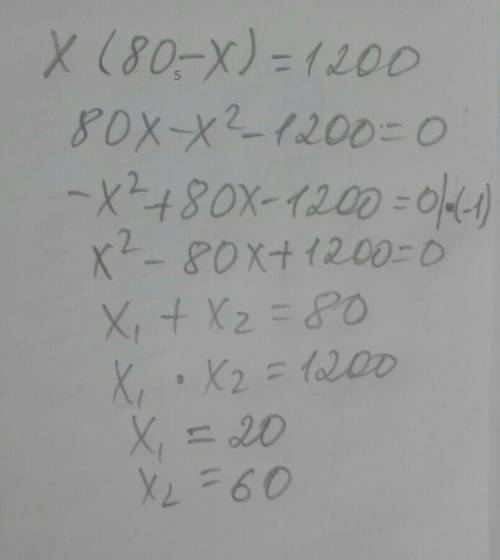 x(80-x)=1200
80x-x²-1200=0
-x²+80x-1200=0|·(-1)
x²-80x+1200=0
x₁+x₂=80
x₁·x₂=1200
x₁=20
x₂=60